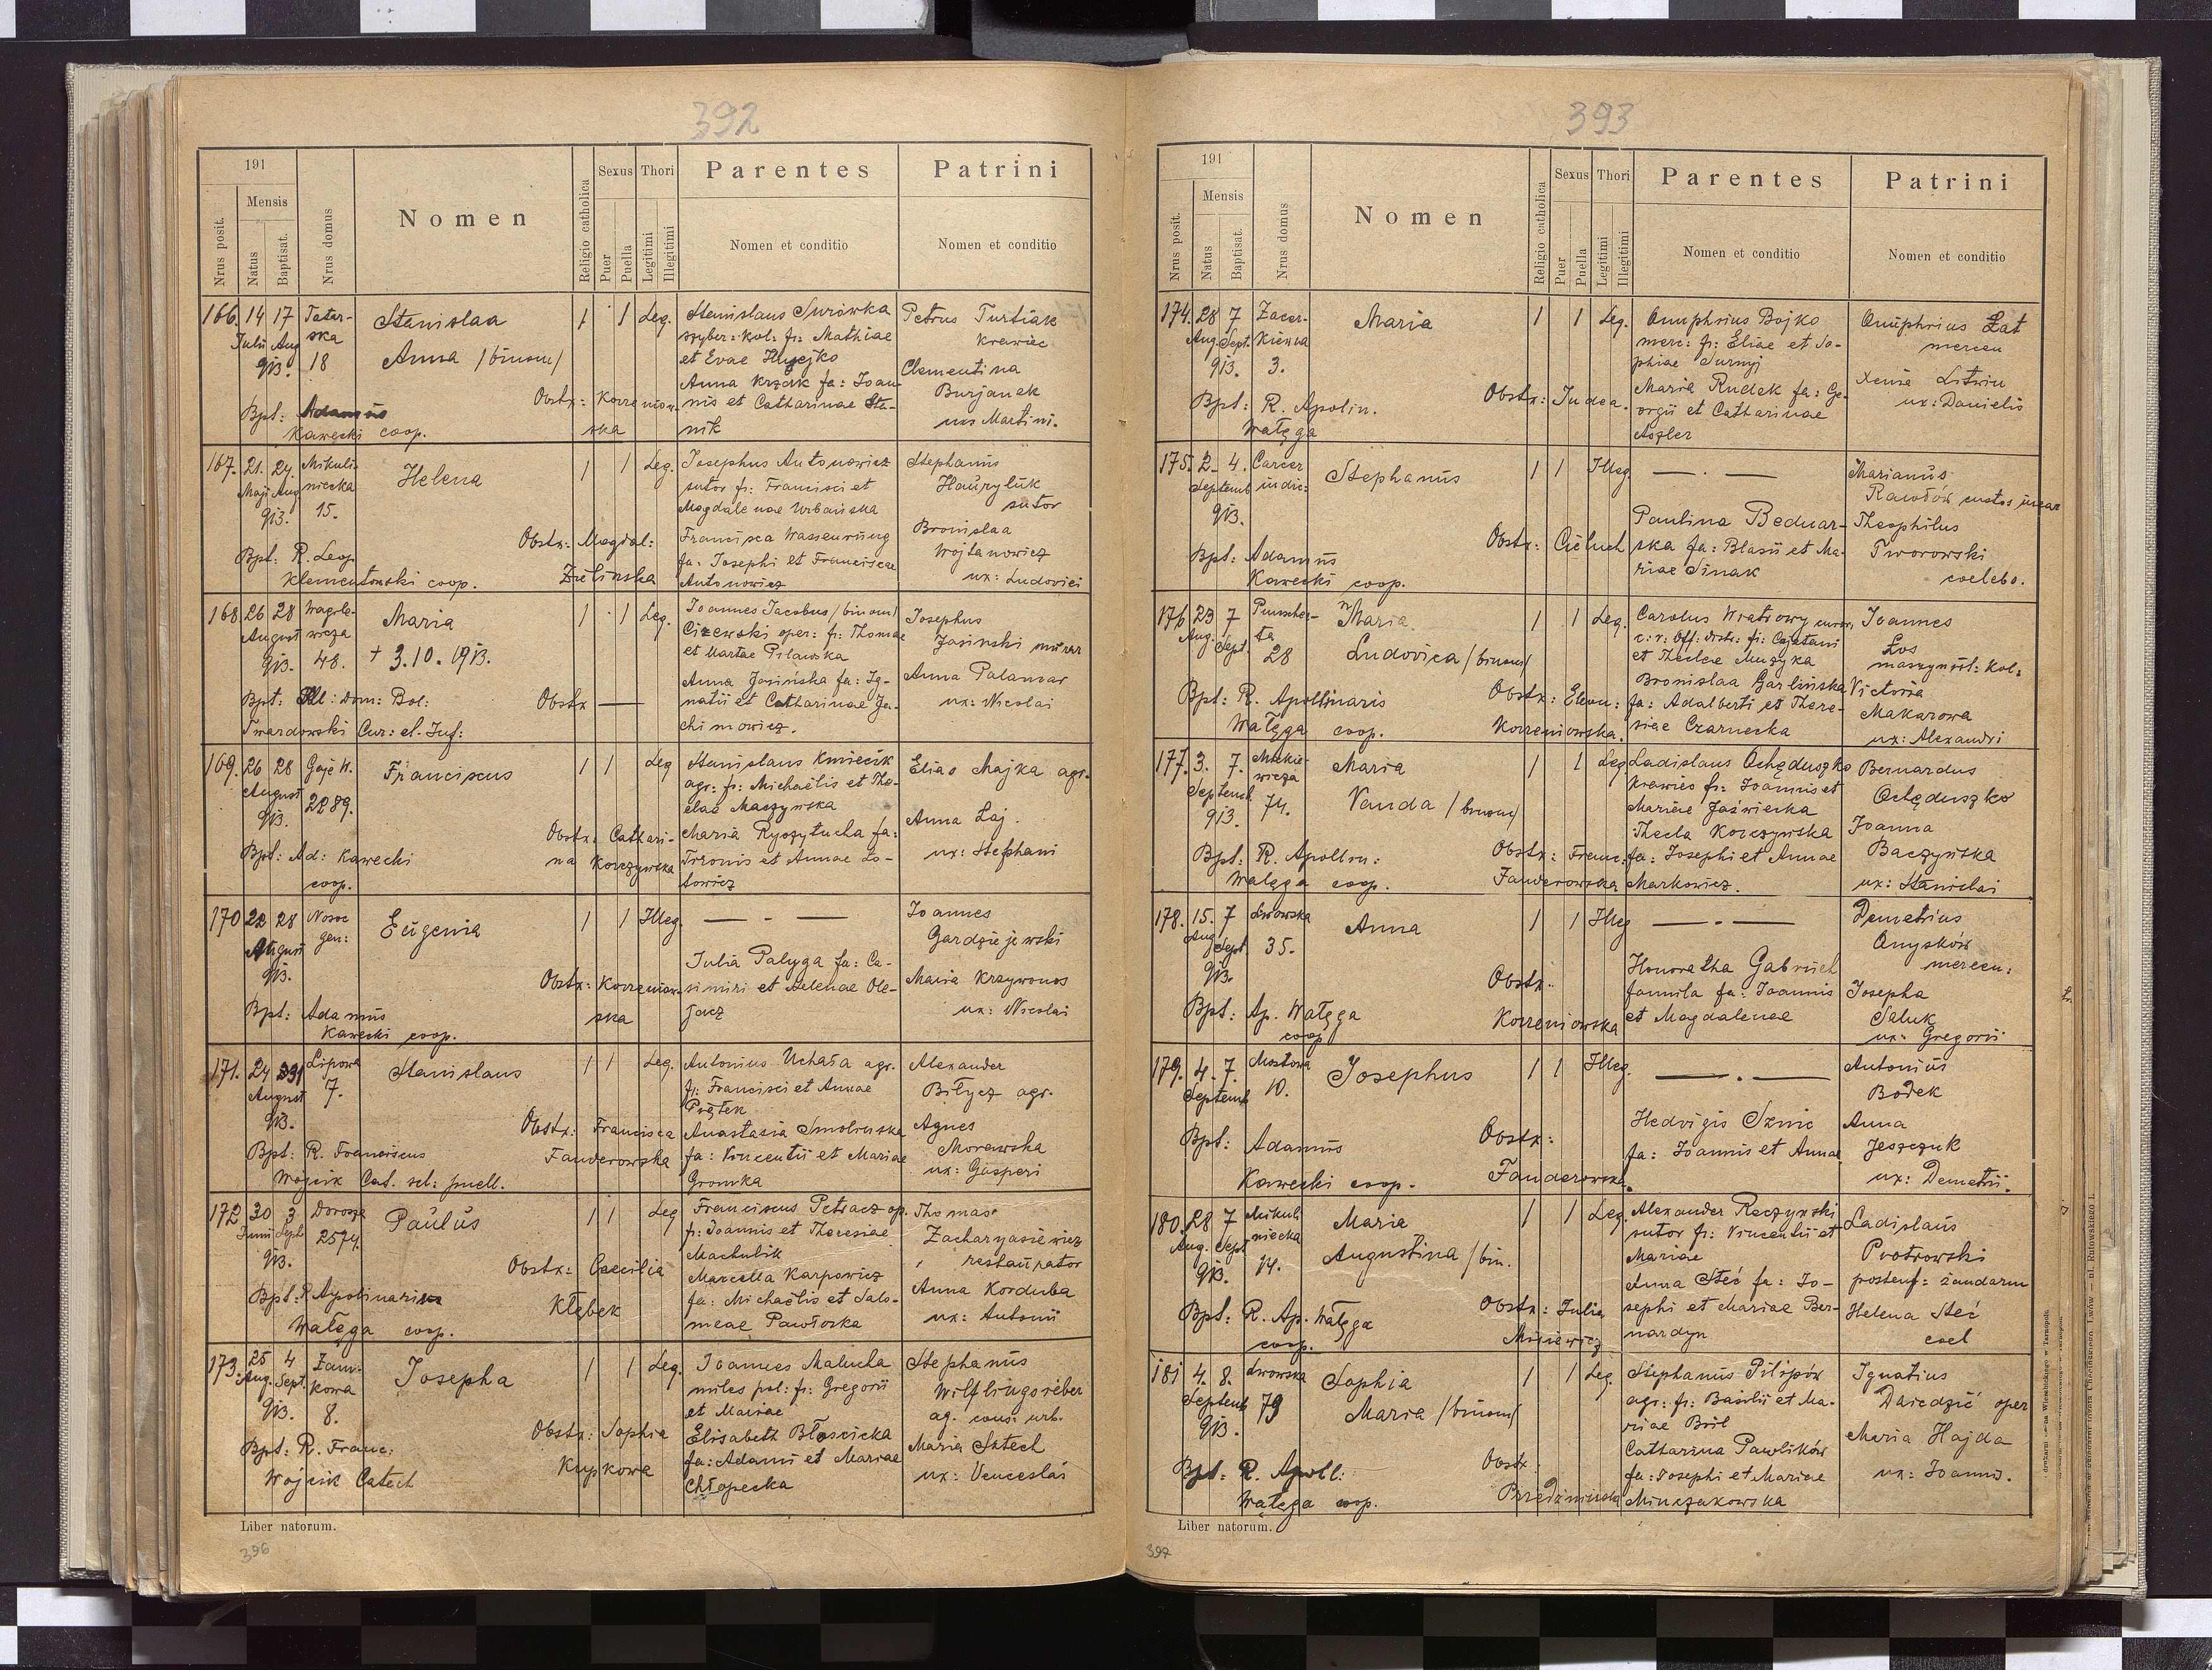 392
191
Nrus posit.
Mensis
Natus
Baptisat.
Nrus domus
Nomen
Religio catholica
Sexus
Puer
Puella
Thori
Legitimi
Illegitimi
Parentes
Nomen et conditio
Patrini
Nomen et conditio
166. 14 17 Tatar- Stanislaa 1 1 Leg. Stanislaus Surówka Petrus Turtiak
Julii Aug ska szyber: kol: fs: Mathiae krawiec
913. 18 Anna /binom/ et Evae
Anna Krzak fa: Joan- Clementina
Obstx: Korreniow- nis et Catharinae Ste- Burjanek
Bpt: Adamus ska nik ux Martini.
Kawecki coop.
167. 21. 24 Mikuli- Helena 1 1 Leg. Josephus Antonowicz Stephanus
Maji Aug niecka sutor fs: Francisci et Hauryluk
913. 15. Magdalenae Urbańska sutor
Obstx: Magdal: Francisca Bronislaa
Bpt: R. Leop. fa: Josephi et Franciscae Wojtanowicz
Klementowski coop. Zielinska Antonowicz ux: Ludovici
168. 26 28 Wagile- Maria 1 1 Leg. Joannes Jacobus /binom/ Josephus
August wicza Cizewski oper: fs: Thomae Jasinski murar
913. 48. + 3.10.1913. et Martae Pilawska
Anna Jasińska fa: Ig- Anna Palamar
Bpt: Ill: Dom: Bol: Obstx — natii et Catharinae Ja- ux: Nicolai
Twardowski Cur: el. Inf: chimowicz.
169. 26 28 Gaje W. Franciscus 1 1 Leg Stanislaus Kmiecik Elias Majka agr.
August 2289. agr: fs: Michaëlis et The-
913. clae Maczyńska
Obstx: Cathari- Maria Ryszytucha fa: Anna Laj.
Bpt: Ad: Kawecki na Korczynska Tronis et Annae Lo- ux: Stephani
coop. towicz
170 22 28 Nosoc Eugenia 1 1 Illeg. — - — Joannes
August gen: Gardziejewski
913. Julia Palyga fa: Ca-
Obstx: Korreniow- simiri et Helenae Ole- Maria Krzywonos
Bpt: Adamus ska jacz ux: Nicolai
Kawecki coop.
171. 24 31 Lipowa Stanislaus 1 1 Leg. Antonius Uchała agr. Alexander
August 7. fs: Francisci et Annae Biłycz agr.
913. Piątek
Obstx: Francisca Anastasia Smolinska Agnes
Bpt: R. Franciscus Fanderowska fa: Vincentii et Mariae Morawska
Wojcik Cat. scl: puell. Gromka ux: Gasperi
172 30 3 Dorosza Paulus 1 1 Leg Franciscus Petracz op. Thomas
Junii Sept. 2574. fs: Joannis et Theresiae Zacharyasiewicz
913. Machulik restaurator
Obstx: Caecilia Marcella Karpowicz
Bpt: R. Apolinaris Kłębek fa: Michaëlis et Salo- Anna Korduba
Wałęga coop. meae Pawłoska ux: Antonii
173. 25 4 Zam- Josepha 1 1 Leg. Joannes Malucha Stephanus
Aug. Sept. kowa miles pol: fs: Gregorii Wilflingsreber
913. 8. et Mariae ag. cons: urb.
Obstx: Sophia Elisabeth Błoscicka Maria Sztech
Bpt: R. Franc: Kupkowa fa: Adami et Mariae ux: Venceslai
Wojcik Catech Chłopecka
Liber natorum.
396
393
191
Nrus posit.
Mensis
Natus
Baptisat.
Nrus domus
Nomen
Religio catholica
Sexus
Puer
Puella
Thori
Legitimi
Illegitimi
Parentes
Nomen et conditio
Patrini
Nomen et conditio
174. 28 7 Zacer- Maria 1 1 Leg. Onuphrius Bojko Onuphrius Łat
Aug. Sept. kiewna merc: fs: Eliae et So- mercen
913. 3. phiae Surnyj
Obstx: Judea. Maria Rudek fa: Ge- Xenia Litwin
Bpt: R. Apolin. orgii et Catharinae ux: Danielis
Wałęga Aszler
175. 2. 4. Carcer Stephanus 1 1 Illeg. — . — Marianus
Septemb indic: Rawłów custos incar
913. Paulina Bednar- Theophilus
Obstx: Cieluch ska fa: Blasii et Ma- Tworowski
Bpt: Adamus riae Sinak coelebs.
Kawecki coop.
176 23 7 Maria. 1 1 Leg. Carolus Wiatrowy Joannes
Aug. Sept. ta c: r: Off: distr: fs: Cajetani Los
28 Ludovica /binom/ et Theclae Muzyka maszynist: kol:
Bronislaa Garlinska Victoria
Bpt: R. Apollinaris Obstx: Eleon: fa: Adalberti et There- Makarowa
Wałęga coop. Korreniowska. siae Czarnecka ux: Alexandri
177. 3. 7. Mickie- Maria 1 1 Leg Ladislaus Ochęduszko Bernardus
Septemb wicza krawiec fs: Joannis et Ochęduszko
913. 74. Vanda /binom/ Mariae Jaświecka
Thecla Korczynska Joanna
Bpt: R. Apollin: Obstx: Franc: fa: Josephi et Annae Baczyńska
Wałęga coop. Fanderowska Markowicz. ux: Stanislai
178. 15. 7 Lwowska Anna 1 1 Illeg — . — Demetrius
Aug Sept. 35. Onysków
913. Honoratha Gabriich mercen:
Obstx: famula fa: Joannis Josepha
Bpt: Ap. Wałęga Korreniowska et Magdalenae Saluk
coop ux: Gregorii
179. 4. 7. Mostowa Josephus 1 1 Illeg. — . — Antonius
Septemb 10. Bodek
Hedvigis Sznic Anna
Bpt: Adamus Obstx: fa: Joannis et Annae Jeszczuk
Kawecki coop. Fanderowska. ux: Demetrii.
180. 28 7 Mikuli Maria 1 1 Leg. Alexander Raczynski Ladislaus
Aug. Sept niecka sutor fs: Vincentii et Piotrowski
913. 14. Augustina /bin. Mariae postenf: żandarm
Anna Steć fa: Jo-
Bpt: R. Ap. Wałęga Obstx: Julia sephi et Mariae Ber- Helena Steć
coop. Misiewicz nardyn coel
181 4. 8. Lwowska Sophia 1 1 Leg. Stephanus Pilipów Ignatius
Septemb 79 agr: fs: Basilii et Ma- Dziedzić oper
913. Maria /binom/ riae Bril
Catharina Pawlików Maria Hajda
Bpt: R. Apoll: Obstx: fa: Josephi et Mariae ux: Joannis.
Wałęga coop. Przedzimirska Minczakowska
Liber natorum.
397